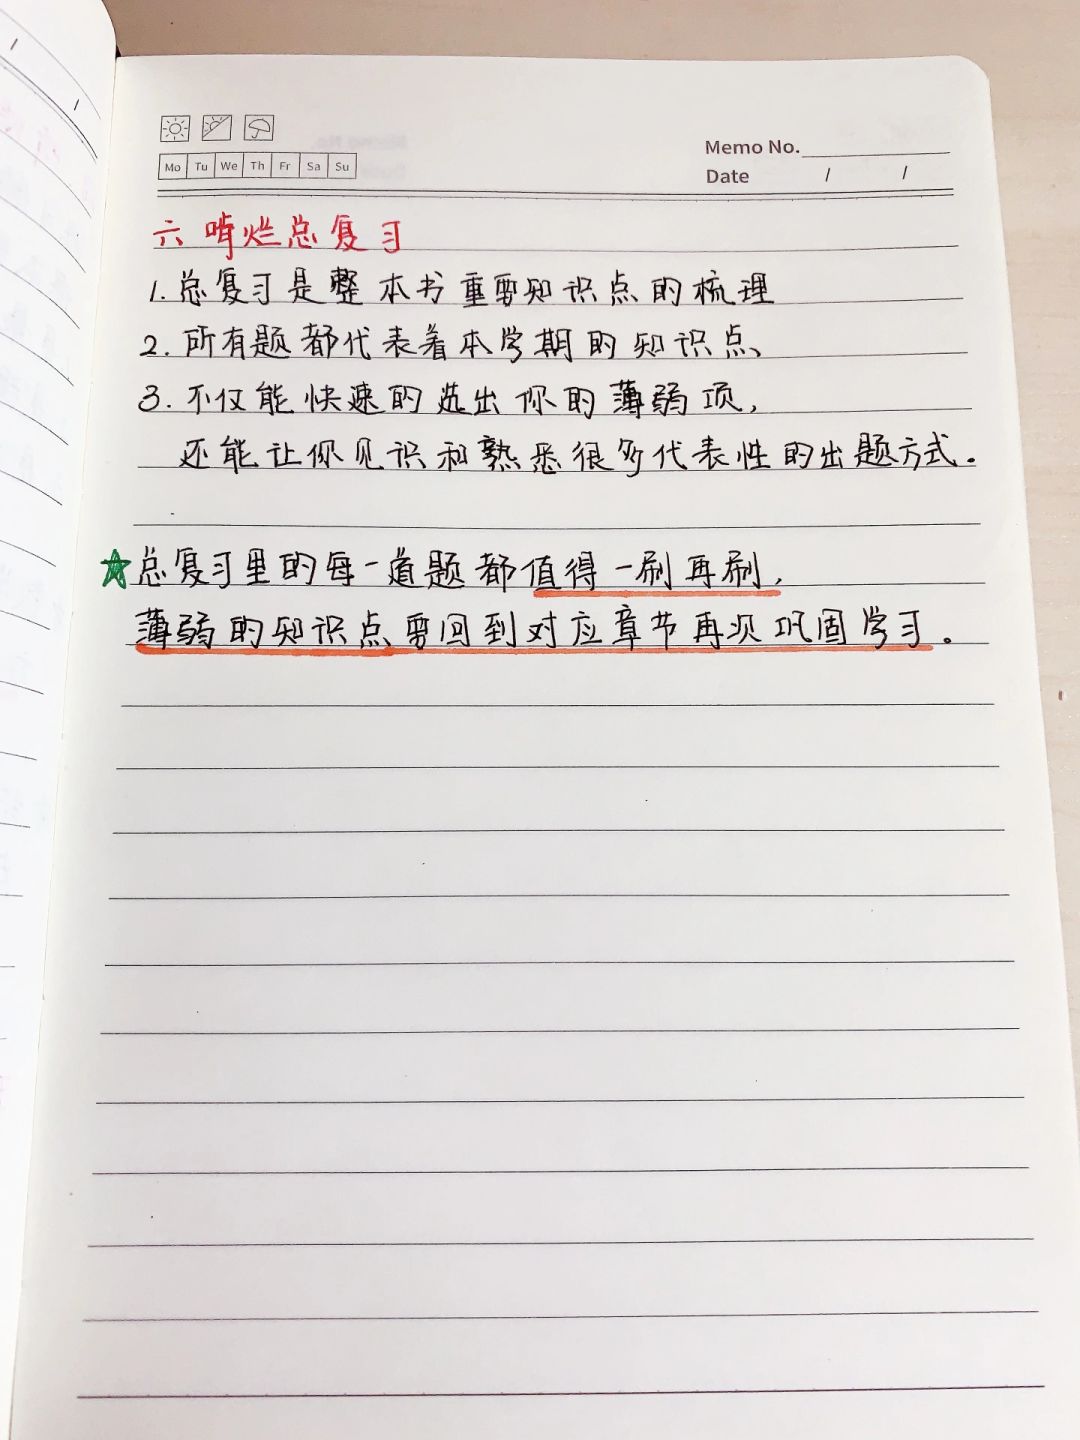 Memo No.
Mo Tu We Th Fr Sa Su
Date / /
六 啃烂总复习
1. 总复习是整本书重要知识点的梳理
2. 所有题都代表着本学期的知识点、
3. 不仅能快速的选出你的薄弱项,
还能让你见识和熟悉很多代表性的出题方式.
总复习里的每一道题都值得一刷再刷,
薄弱的知识点要回到对应章节再次巩固学习。